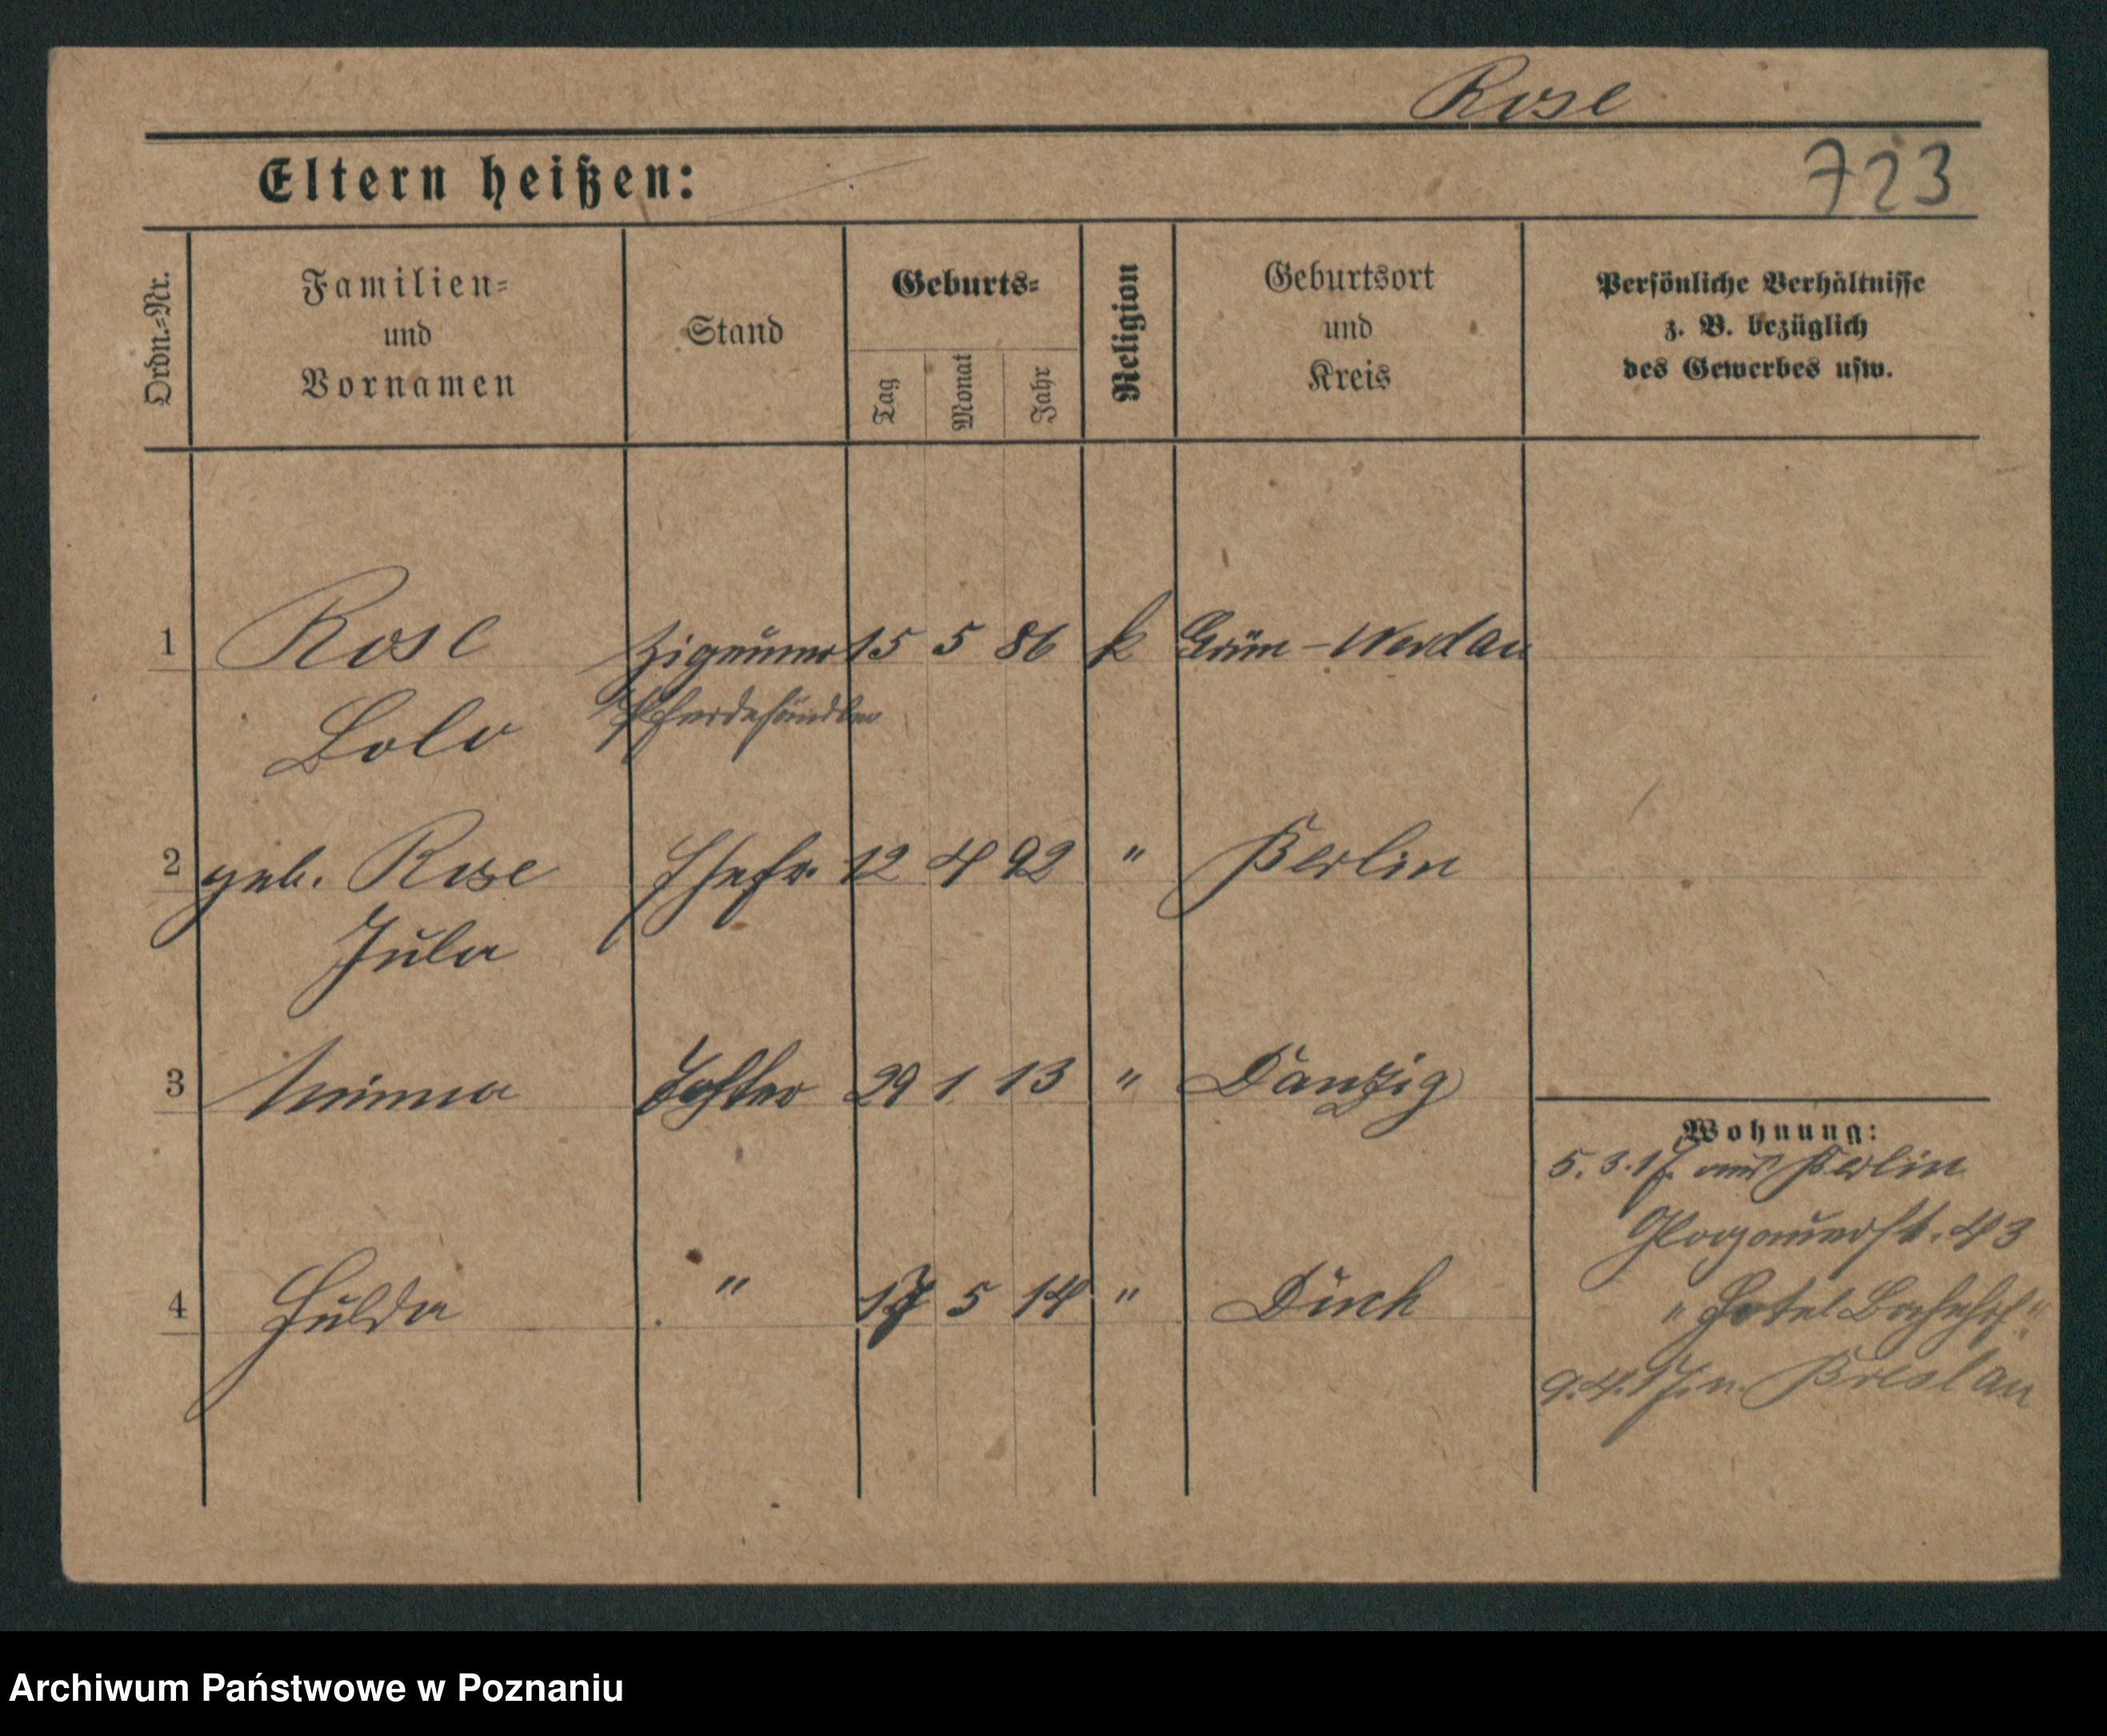 Rose
Eltern heißen:
723
Ordn.-Nr.
Familien-
und
Vornamen
Stand
Geburts-
Tag
Monat
Jahr
Religion
Geburtsort
und
Kreis
Persönliche Verhältnisse
z. B. bezüglich
des Gewerbes usw.
1 Rose Zigeuner 15 5 86 k Grün-Werdau
Lolo Pferdehändler
2 geb. Rose Ehefr. 12 4 92 " Berlin
Jula
3 Minna Tochter 29 1 13 " Danzig
Wohnung:
5. 3. 17. aus Berlin
Glogauerstr. 43
4 Hulda " 17 5 14 "
" Hotel Bahnhof "
9. 4. 17. n. Breslau
Archiwum Państwowe w Poznaniu